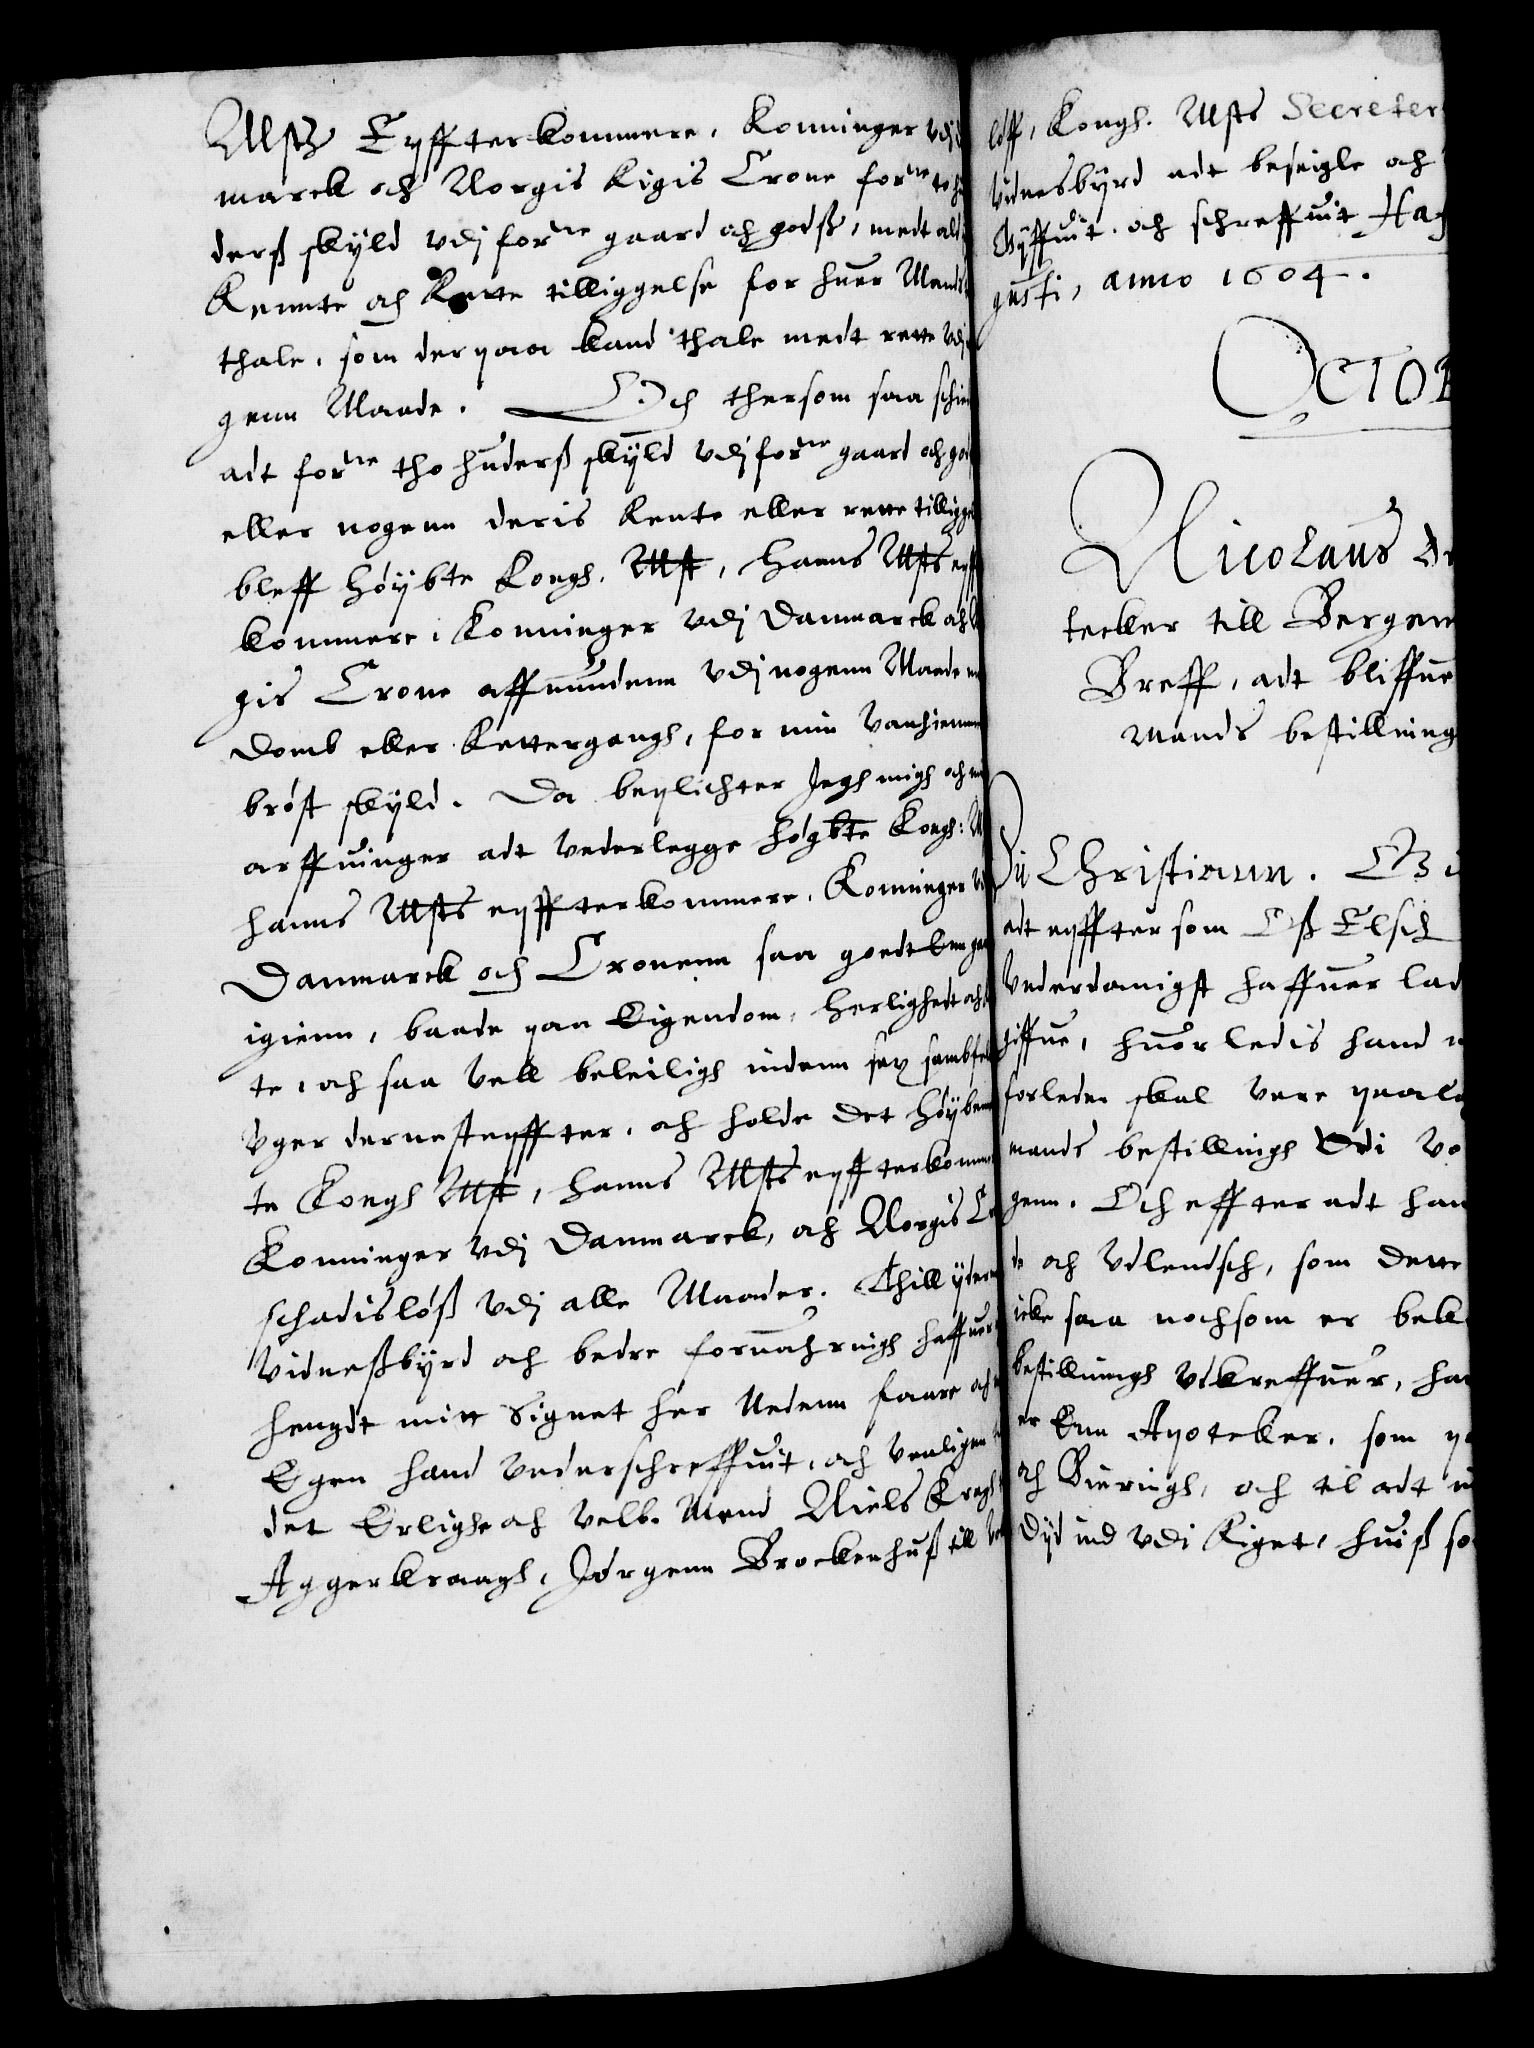 Mstz Eyffterkommere, Konninger vdj
marck och Norgis Rigis Crone forne to hu
derß skyld vdj forne gaard och godß, medt ald
Rennte och Rette tilliggelse for huer Mands
thale, som der paa kand thale medt rette vdj
genn Maade. Och thersom saa schie
adt forne tho huderß skyld vdj forne gaard och god
eller nogenn deris Rente eller rette tilligge
bleff høÿbte Kongh. Mst, hanns Msts eyff
kommere, Konninger vdj Danmarck och
gis Crone affuundenn vdj nogenn Maade
Domb eller Rettergangh, for min vanhiemme
brøst skyld. Da beplichter Jegh migh och
arffuinger adt vederlegge høgbte Kongh: M
hanns Msts eyffterkommere, Konninger
Danmarck och Cronenn saa goedt
igienn, baade paa Eigendom, herlighedt och
te, och saa vell beleiligh indenn sex sambfe
vger dernest eyffter, och holde det høÿbem
te Kongh Mst, hanns Msts eyffterkomme
Konninger vdj Danmarck, och Norgis Cr
schadisløß vdj alle Maader. Thill ÿder
vidneßbÿrd och bedre foruahringh haffuer
hengdt mitt Signet her Nedenn faare och
Egen hand vnderschreffuit, och venligen
det Erlighe och velb. Mend Niels Kragh
Aggerkraagh, Jørgenn Brockenhuß till
løff, Kongh. Msts Secreter
Vidnesbÿrd adt beseigle och
Gÿffuit och schreffuit Hag
gusti, anno 1604.
OCTOB
Nicolaus
tecker till Bergen
Breff, adt bliffue
Mands bestilling
Vii Christiann. G
adt eyffter som Oß Elsch
Vnderdanigst haffuer lad
giffue, huorledis hand
forleden skal vere paala
mands bestillingh Vdi Vo
genn. Och effter adt han
de och Vdlendsch, som dette
icke saa nochsom er bek
bestillingh vdkreffuer, ha
er Enn Apotecker, som
och Næringh, och til adt
Dÿd ind vdi Riget, huiß so